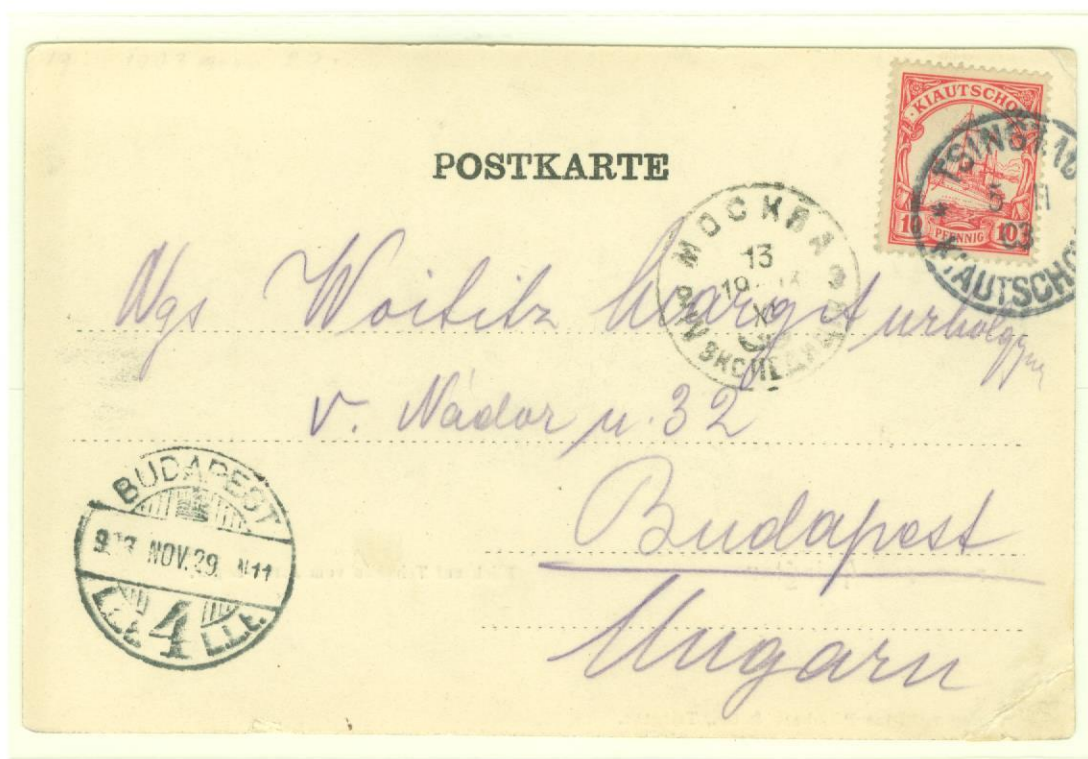 KIAUTSCHOU
10 PFENNIG 10
TSINGTAU
5 11
03
KIAUTSCHOU
POSTKARTE
МОСКВА
13
X
ЭКСПЕДИЦ
Ngs Woititz Margit urhölgynek
V. Nádor u. 32
Budapest
Ungarn
BUDAPEST
903 NOV. 29. N11
4